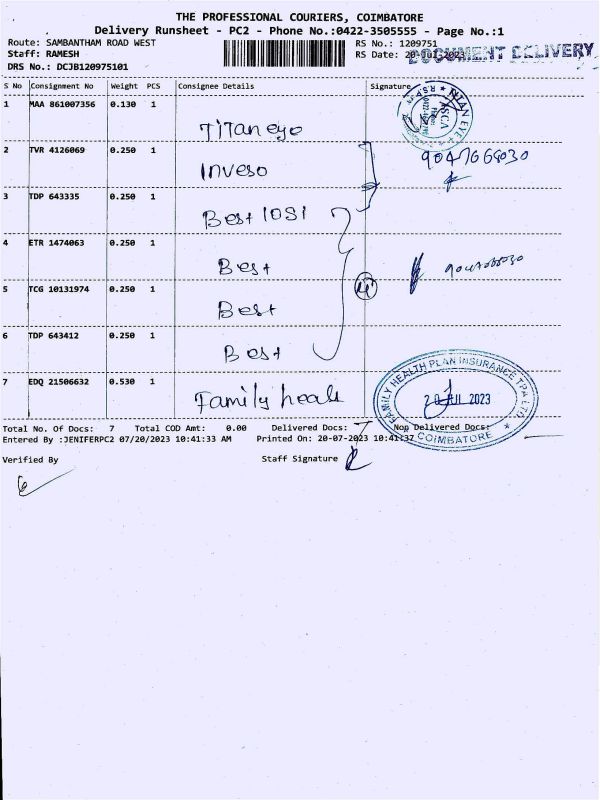 THE PROFESSIONAL COURIERS, COIMBATORE
Delivery Runsheet - PC2 - Phone No.:0422-3505555 - Page No.:1
Route: SAMBANTHAM ROAD WEST
RS No.: 1209751
Staff: RAMESH
RS Date: 20-Jul-2023
DOCUMENT DELIVERY
DRS No.: DCJB120975101
S No Consignment No Weight PCS Consignee Details Signature
1 MAA 861007356 0.130 1 Titan eye
TITAN EYE
2 TVR 4126069 0.250 1 Inveso
3 TDP 643335 0.250 1 Best IOSI
4 ETR 1474063 0.250 1 Best
5 TCG 10131974 0.250 1 Best
4
6 TDP 643412 0.250 1 Best
7 EDQ 21506632 0.530 1 Family heals
FAMILY HEALTH PLAN INSURANCE TPA LTD
20 JUL 2023
* COIMBATORE *
Total No. Of Docs: 7 Total COD Amt: 0.00 Delivered Docs: 7 Non Delivered Docs:
Entered By :JENIFERPC2 07/20/2023 10:41:33 AM Printed On: 20-07-2023 10:41:37
Verified By Staff Signature